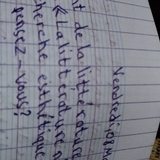 Vendredi 08 Ma
t de la littérature
« La littérature n
herche esthétique
pensez-vous?